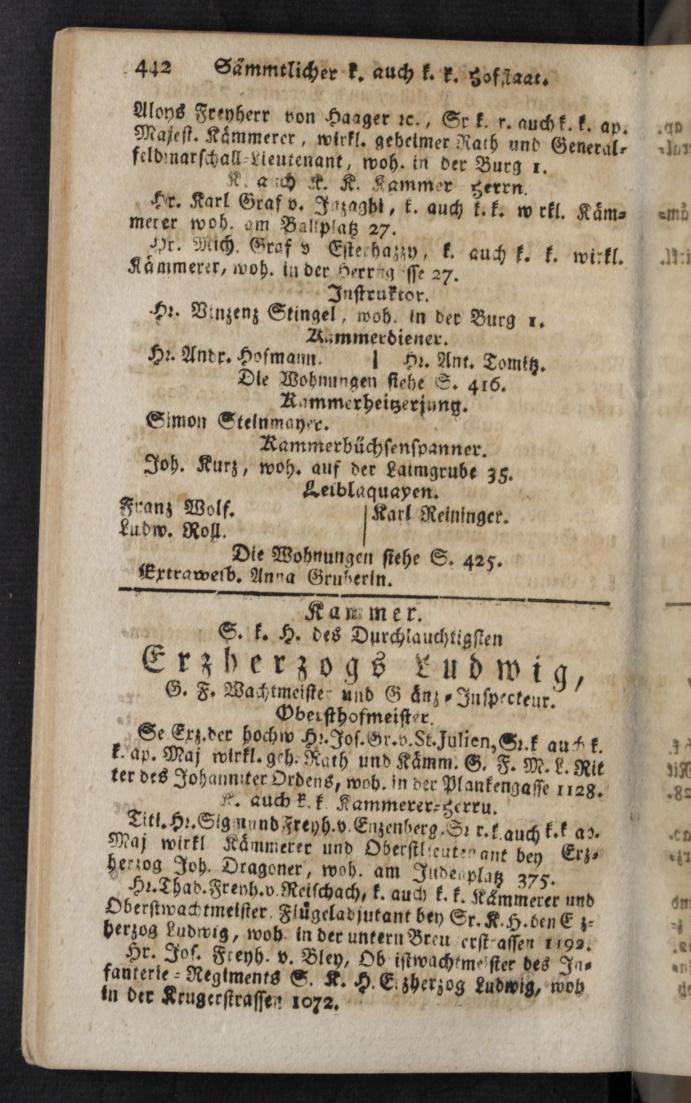 442 Sämmtlicher k. auch k. k. Hofstaat.
Aloys Freyherr von Haager ꝛc., Sr k. r. auch k. k. ap.
Majest. Kämmerer, wirkl. geheimer Rath und General-
feldmarschall-Lieutenant, woh. in der Burg 1.
K. auch K. K. Kammer Herrn.
Hr. Karl Graf v. Inzaghi, k. auch k. k. wirkl. Käm-
merer woh. am Ballplatz 27.
Hr. Mich. Graf v Esterhazzy, k. auch k. k. wirkl.
Kämmerer, woh. in der Herrngasse 27.
Instruktor.
Hr. Vinzenz Stingel, woh. in der Burg 1.
Kammerdiener.
Hr. Andr. Hofmann. | Hr. Ant. Tomitz.
Die Wohnungen siehe S. 416.
Kammerheitzerjung.
Simon Steinmayer.
Kammerbüchsenspanner.
Joh. Kurz, woh. auf der Laimgrube 35.
Leiblaquayen.
Franz Wolf. | Karl Reininger.
Ludw. Roll.
Die Wohnungen siehe S. 425.
Extraweib. Anna Gruberin.
Kammer.
S. k. H. des Durchlauchtigsten
Erzherzogs Ludwig,
G. F. Wachtmeister und Gränz-Inspecteur.
Obersthofmeister.
Se Erz. der hochw Hr. Jos. Gr. v. St. Julien, Sr. k auch k.
k. ap. Maj wirkl. geh. Rath und Kämm. G. F. M. L. Rit
ter des Johanniter Ordens, woh. in der Plankengasse 1128.
K. auch k. k Kammerer-Herru.
Titl. Hr. Sigmund Freyh. v. Enzenberg, Sr r. k auch k. k ap.
Maj wirkl Kämmerer und Oberstlieutenant bey Erz-
herzog Joh. Dragoner, woh. am Judenplatz 375.
Hr. Thad. Freyh. v. Reischach, k. auch k. k. Kämmerer und
Oberstwachtmeister, Flügeladjutant bey Sr. K. H. den Erz-
herzog Ludwig, woh in der untern Breunerstrassen 1192.
Hr. Jos. Freyh. v. Bley, Obristwachtmeister des In-
fanterie-Regiments S. K. H. Erzherzog Ludwig, woh
in der Krugerstrassen 1072.